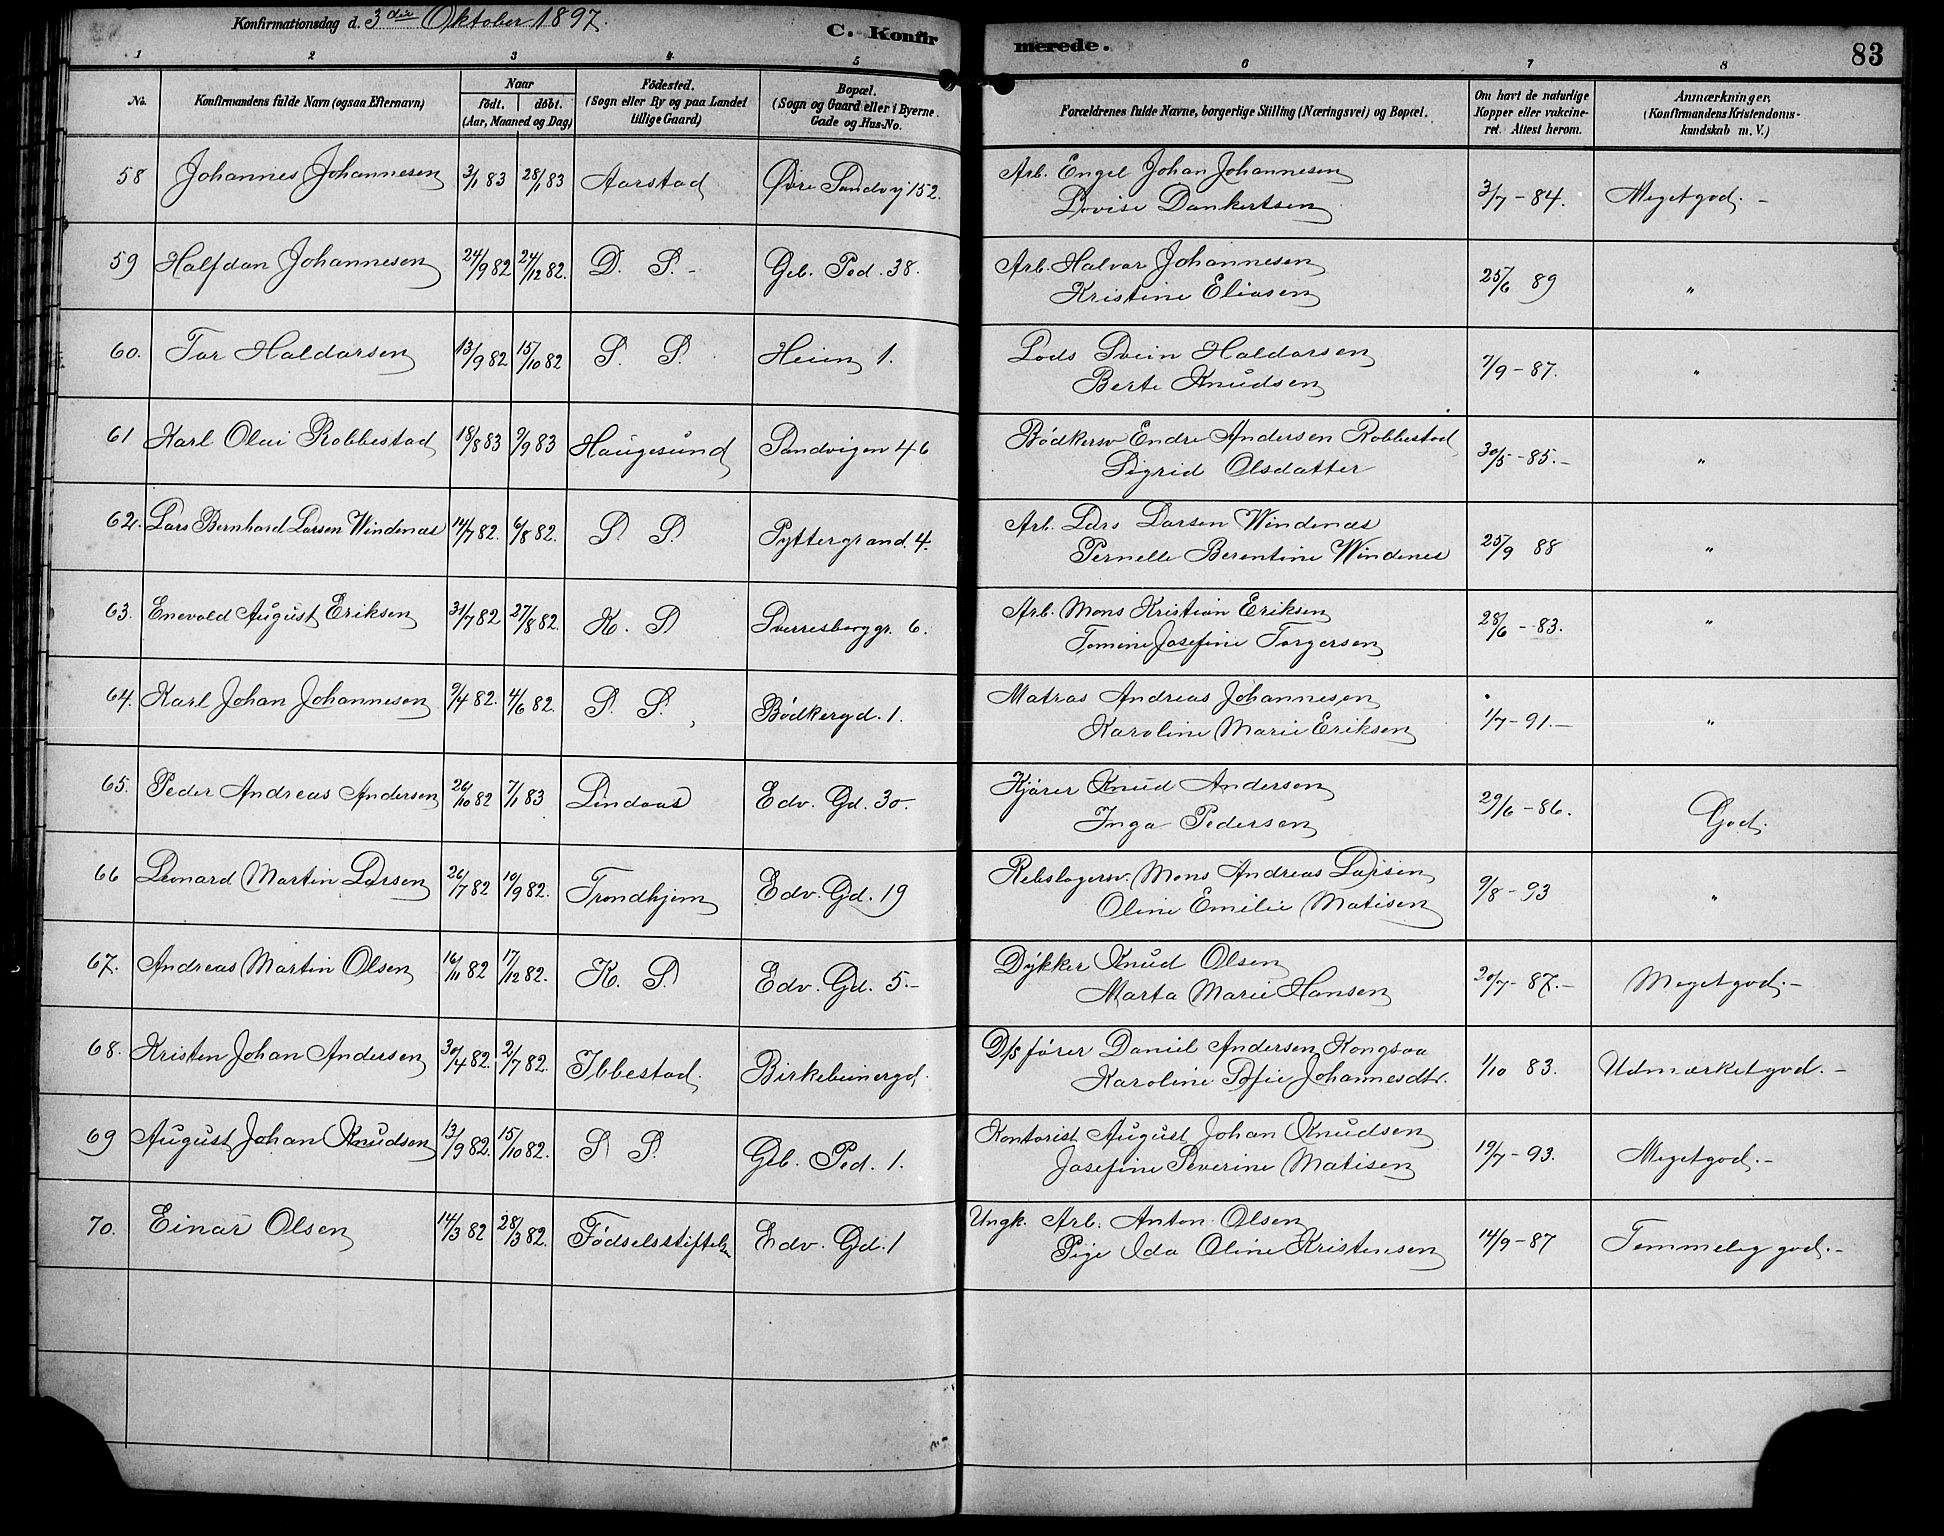 Konfirmationsdag d. 3die Oktober 1897.
C. Konfirmerede.
83
1 2 3 4 5 6 7 8
No.
Konfirmandens fulde Navn (ogsaa Efternavn)
Naar
født. døbt.
(Aar, Maaned og Dag)
Fødested.
(Sogn eller By og paa Landet
tillige Gaard)
Bopæl.
(Sogn og Gaard eller i Byerne
Gade og Hus-No.
Forældrenes fulde Navne, borgerlige Stilling (Næringsvei) og Bopæl.
Om havt de naturlige
Kopper eller vakcine-
ret. Attest herom.
Anmærkninger,
(Konfirmandens Kristendoms-
kundskab m. V.)
58 Johannes Johannesen 3/1 83 28/1 83 Aarstad Øvre Sandvj 152. Arb. Engel Johan Johannesen
Lovise Dankertsen 3/7 - 84. Meget god. -
59 Halfdan Johannesen 24/9 82 24/12 82. D. S. - Geb. Ped. 38. Arb. Halvar Johannesen
Kristine Eliasen 25/6 89 "
60. Tor Haldorsen 13/9 82 15/10 82 S. S. Heien 1. Lods Svein Haldorsen
Berte Knudsen 7/9 - 87. "
61 Karl Olai Robbestad 18/8 83 9/9 83 Haugesund Sandvigen 46 Bødkersv Endre Andersen Robbestad
Sigrid Olsdatter 30/5 - 85. - "
62. Lars Bernhard Larsen Windenæs 14/7 82. 6/8 82. S. S. Pyttergrand. 4. Arb. Lars Larsen Windenæs
Pernelle Berentine Windenes 25/9 88 "
63. Enevold August Eriksen 31/7 82 27/8 82. K. S Sverresborggr. 6. Arb. Mons Kristian Eriksen
Tomine Josefine Torgersen 28/6 - 83. "
64. Karl Johan Johannesen 9/4 82. 4/6 82 S. S. Bødkergd. 1. Matros Andreas Johannesen
Karoline Marie Eriksen 1/7 - 91. - "
65. Peder Andreas Andersen 26/10 82 7/1 83 Lindaas Edv. Gd. 30. Kjører Knud Andersen
Inga Pedersen 29/6 - 86. God.
66 Leonard Martin Larsen 26/7 82 10/9 82. Trondhjem Edv. Gd. 19 Rebslagersv. Mons Andreas Larsen
Oline Emilie Matisen 9/8 - 93 "
67. Andreas Martin Olsen 16/11 82 17/12 82. K. S. Edv. Gd. 5. - Dykker Knud Olsen
Marta Marie Hansen 20/7 - 87. - Meget god. -
68. Kristen Johan Andersen 30/4 82. 2/7 82. Ibbestad. Birkebeinergd. D/s fører Daniel Andersen Kongsva
Karoline Sofie Johannesdtr. 1/10 83. Udmærket god. -
69 August Johan Knudsen 13/9 82. 15/10 82. S S. Geb. Ped. 1. Kontorist August Johan Knudsen
Josefine Severine Matisen 19/7 - 93. Meget god. -
70. Einar Olsen 14/3 82 28/3 82. Fødselsstiftelsen Edv. Gd. 1 Ungk. Arb. Anton Olsen
Pige Ida Oline Kristensen 14/9 - 87 Temmelig god. -